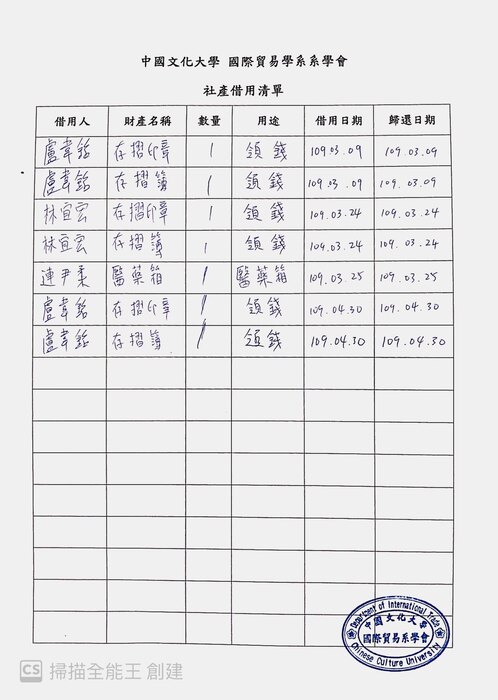 中國文化大學 國際貿易學系系學會
社產借用清單
借用人 財產名稱 數量 用途 借用日期 歸還日期
盧韋銘 存摺印章 1 領錢 109.03.09 109.03.09
盧韋銘 存摺簿 1 領錢 109.03.09 109.03.09
林宜宏 存摺印章 1 領錢 109.03.24 109.03.24
林宜宏 存摺簿 1 領錢 109.03.24 109.03.24
連尹柔 醫藥箱 1 醫藥箱 109.03.25 109.03.25
盧韋銘 存摺印章 1 領錢 109.04.30 109.04.30
盧韋銘 存摺簿 1 領錢 109.04.30 109.04.30
Department of International Trade
中國文化大學
國際貿易系學會
Chinese Culture University
CS 掃描全能王 創建